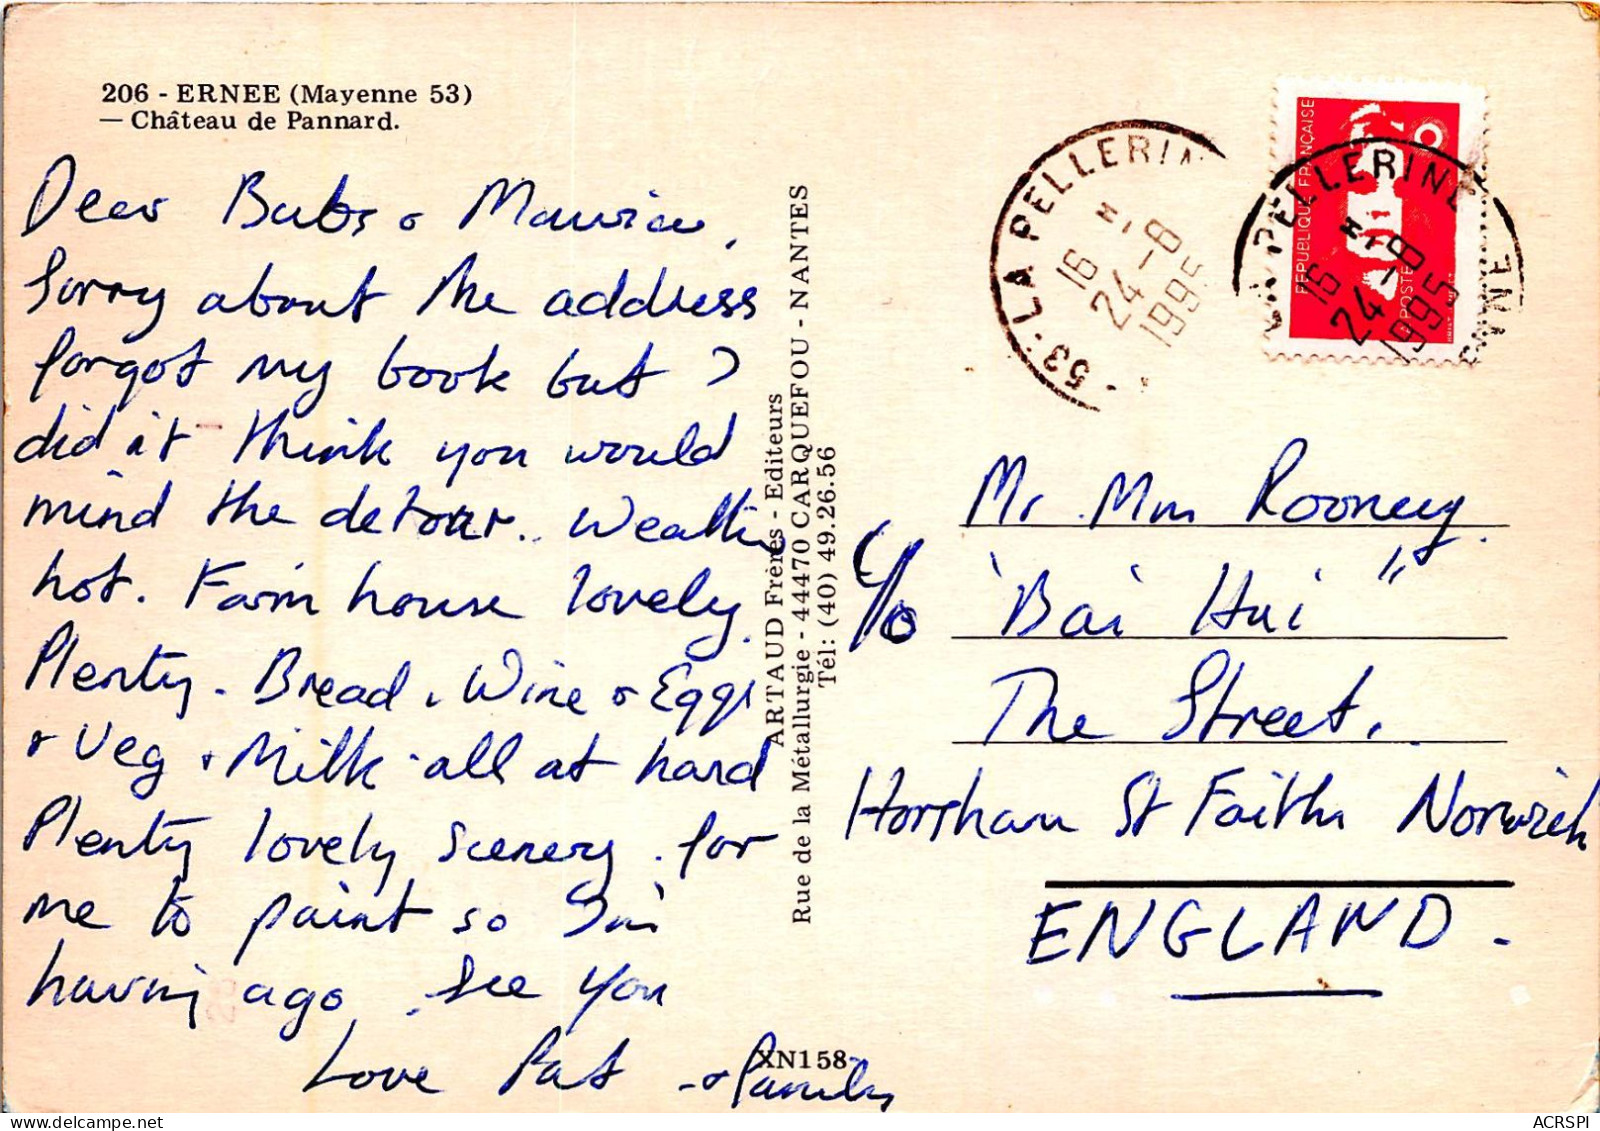 206 - ERNEE (Mayenne 53)
— Château de Pannard.
Dear Babs & Maurice,
Sorry about the address
forgot my book but I
did it think you would
mind the detour.. Weather
hot. Farm house lovely.
Plenty. Bread, Wine & Eggs
& Veg & Milk - all at hand
Plenty lovely scenery. for
me to paint so I'm
having ago. See you
Love Pat & family
ARTAUD Frères - Editeurs
Rue de la Métallurgie - 44470 CARQUEFOU - NANTES
Tél : (40) 49.26.56
XN158
53 - LA PELLERINE
16 H
24 -8
1995
RÉPUBLIQUE FRANÇAISE
LA POSTE
LA PELLERINE
16 H
24 -8
1995
MAYENNE
Mr. Mm Rooney.
c/o 'Bai Hui"
The Street,
Horsham St Faiths Norwich
ENGLAND.
ACRSPI